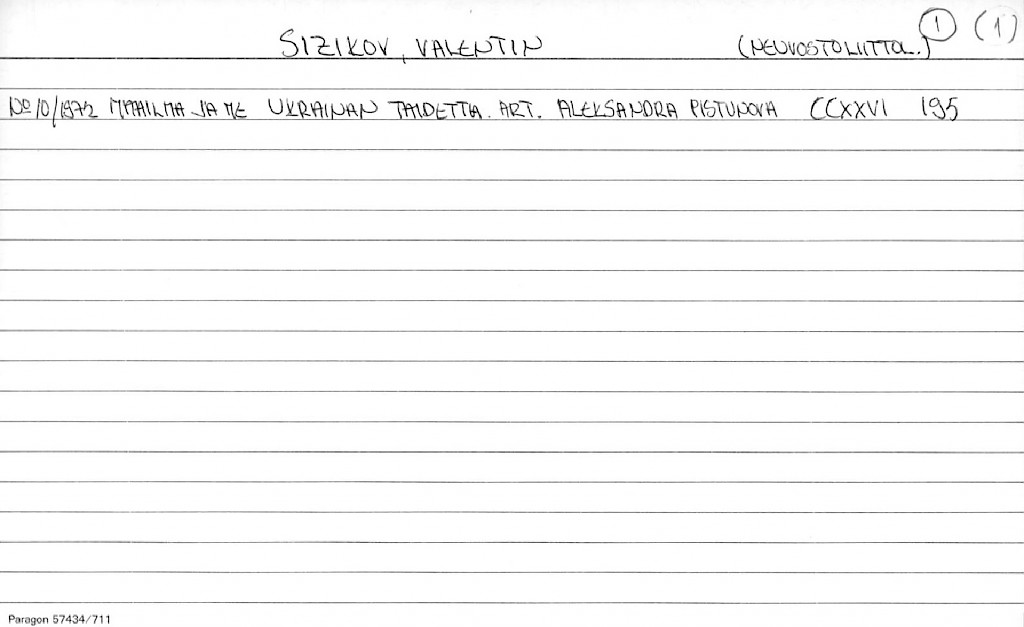 SIZIKOV, VALENTIN (NEUVOSTOLIITTOL.) 1 (1)
No 10/1972 MAAILMA JA ME UKRAINAN TAIDETTA. ART. ALEKSANDRA PISTUNOVA CCXXVI 195
Paragon 57434/711